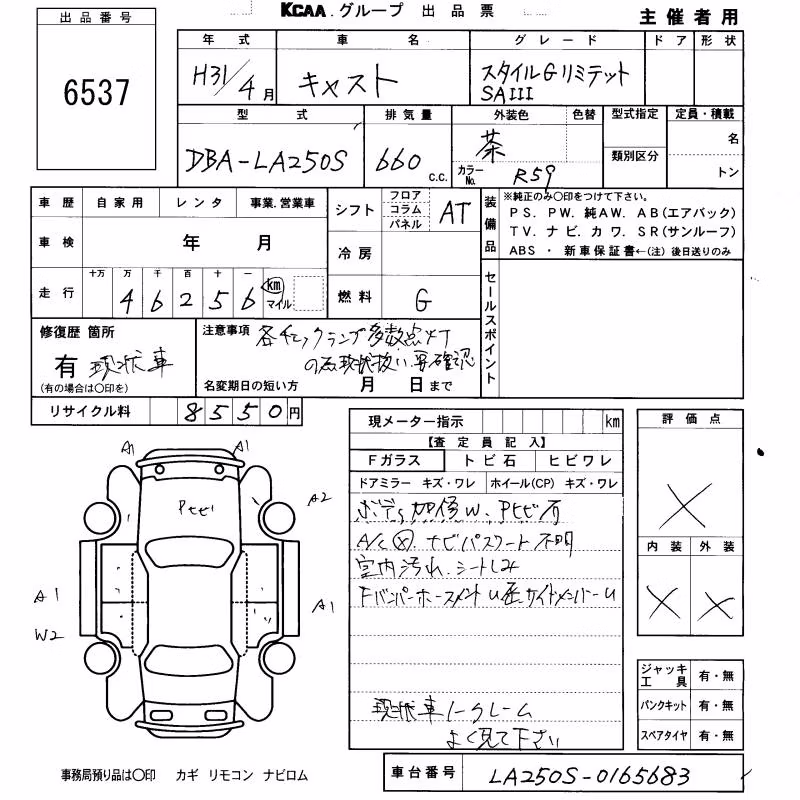 KCAA.グループ 出品票
主催者用
出品番号
6537
年式 車名 グレード ドア 形状
H31/4月 キャスト スタイルGリミテット
SAIII
型式 排気量 外装色 色替 型式指定 定員・積載
DBA-LA250S 660 c.c. 茶 名
カラーNo. R59 類別区分 トン
車歴 自家用 レンタ 事業.営業車
シフト フロア コラム パネル AT
装備品
※純正のみ○印をつけて下さい。
PS. PW. 純AW. AB(エアバック)
TV. ナビ. カワ. SR(サンルーフ)
ABS ・ 新車保証書←(注) 後日送りのみ
車検 年 月
冷房
走行 十万 万 千 百 十 一
46256 km マイル
燃料 G
セールスポイント
修復歴 箇所
有 現状車
(有の場合は○印を)
注意事項 各チェックランプ多数点灯
の為現状扱い.要確認
名変期日の短い方 月 日まで
リサイクル料 8550円
現メーター指示 km
【査定員記入】
Fガラス トビ石 ヒビワレ
ドアミラー キズ・ワレ ホイール(CP) キズ・ワレ
ボデーS 加修W、Pヒビ有
A/C⊗.ナビパスワード不明
室内汚れ.シートしみ
Fバンパーホースメントu 左サイドメンバーu
現状車ノークレーム
よく見て下さい
評価点
×
内装 外装
× ×
A1 A1
Pヒビ
A2
A1
W2
A1
ジャッキ工具 有・無
パンクキット 有・無
スペアタイヤ 有・無
事務局預り品は○印 カギ リモコン ナビロム
車台番号 LA250S-0165683